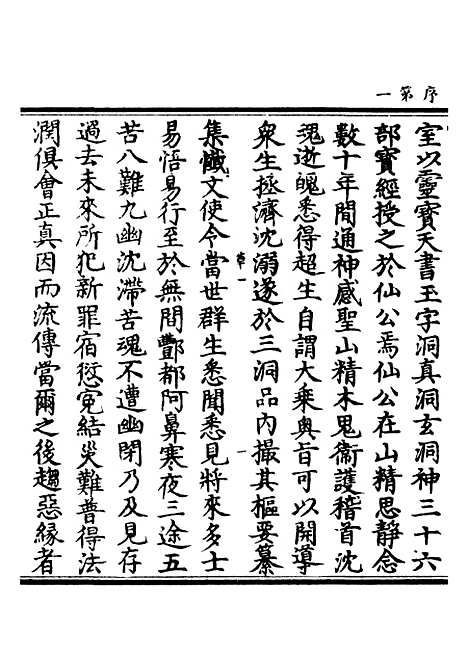 序第一
室以靈寳天書玉字洞真洞玄洞神三十六
部寳經授之於仙公焉仙公在山精思靜念
數十年間通神感聖山精木鬼衞護稽首沈
魂逝魄悉得超生自謂大乘奥旨可以開導
衆生拯濟沈溺遂於三洞品内撮其樞要纂
集懴文使今當世群生悉聞悉見將來多士
易悟易行至於無間酆都阿鼻寒夜三途五
苦八難九幽沈滯苦魂不遭幽閉乃及見存
過去未來所犯新罪宿愆寃結災難普得法
潤俱會正真因而流傳當爾之後趨惡緣者